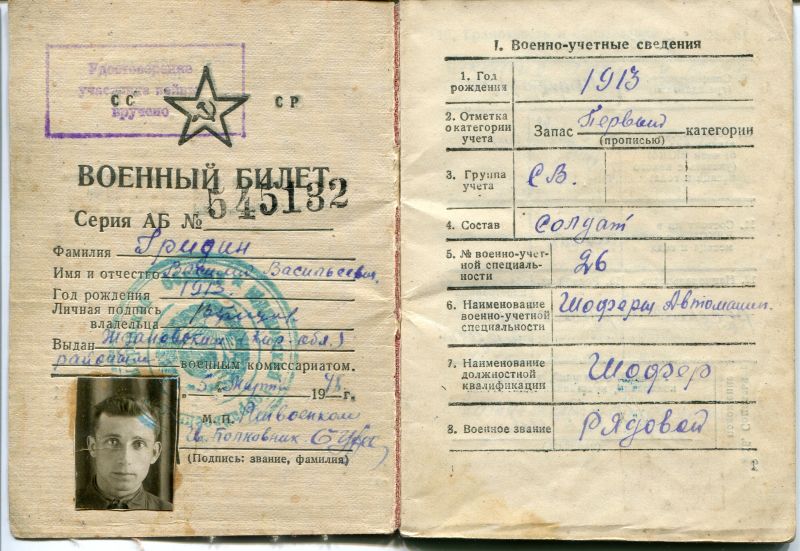 Удостоверение
участника войны
вручено
СС СР
ВОЕННЫЙ БИЛЕТ
Серия АБ № 545132
Фамилия Гридин
Имя и отчество Василий Васильевич
Год рождения 1913
Личная подпись
владельца
Выдан Ждановским (Кир. обл.)
районным военным комиссариатом.
„5" Марта 1948 г.
М.П. Райвоенком
Полковник
(Подпись: звание, фамилия)
I. Военно-учетные сведения
1. Год рождения 1913
2. Отметка о категории учета Запас Первый категории
(прописью)
3. Группа учета СВ.
4. Состав Солдат
5. № военно-учетной специальности 26
6. Наименование военно-учетной специальности Шоферы Автомашин.
7. Наименование должностной квалификации Шофер
8. Военное звание Рядовой
1